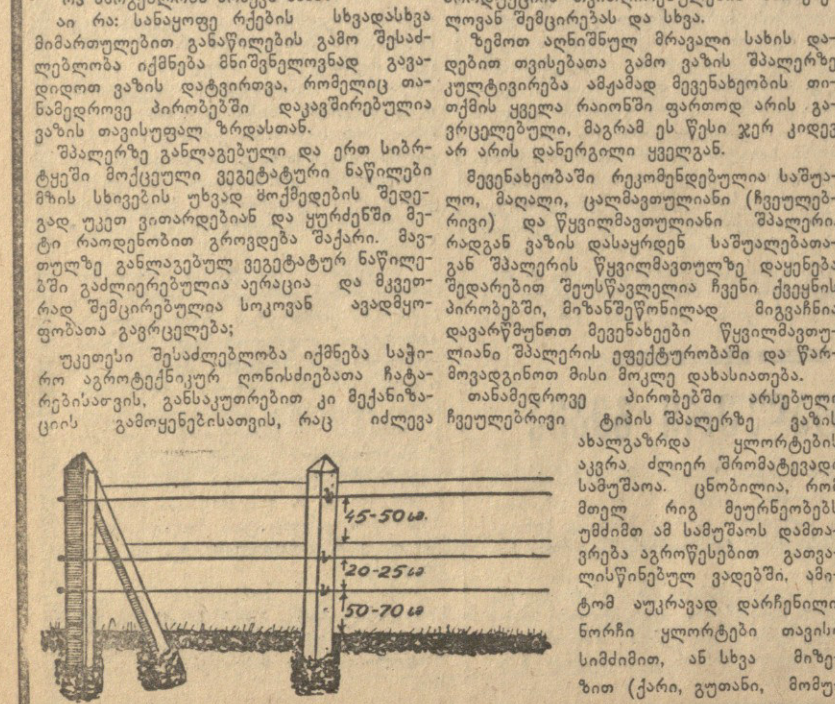 აი რა: სანაყოფე რქების სხვადასხვა
მიმართულებით განაწილების გამო შესაძ-
ლებლობა იქმნება მნიშვნელოვნად გავა-
დიდოთ ვაზის დატვირთვა, რომელიც თა-
ნამედროვე პირობებში დაკავშირებულია
ვაზის თავისუფალ ზრდასთან.
შპალერზე განლაგებული და ერთ სიბრ-
ტყეში მოქცეული ვეგეტატური ნაწილები
მზის სხივების უხვად მოქმედების შედე-
გად უკეთ ვითარდებიან და ყურძენში მე-
ტი რაოდენობით გროვდება შაქარი. მავ-
თულზე განლაგებულ ვეგეტატურ ნაწილე-
ბში გაძლიერებულია აერაცია და მკვეთ-
რად შემცირებულია სოკოვან ავადმყო-
ფობათა გავრცელება;
უკეთესი შესაძლებლობა იქმნება საჭი-
რო აგროტექნიკურ ღონისძიებათა ჩატა-
რებისათვის, განსაკუთრებით კი მექანიზა-
ციის გამოყენებისათვის, რაც იძლევა
ლოვან შემცირებას და სხვა.
ზემოთ აღნიშნულ მრავალი სახის და-
დებით თვისებათა გამო ვაზის შპალერზე
კულტივირება ამჟამად მევენახეობის თი-
თქმის ყველა რაიონში ფართოდ არის გა-
ვრცელებული, მაგრამ ეს წესი ჯერ კიდევ
არ არის დანერგილი ყველგან.
მევენახეობაში რეკომენდებულია საშუა-
ლო, მაღალი, ცალმავთულიანი (ჩვეულებ-
რივი) და წყვილმავთულიანი შპალერი,
რადგან ვაზის დასაყრდენ საშუალებათა-
გან შპალერის წყვილმავთულზე დაყენება
შედარებით შეუსწავლელია ჩვენი ქვეყნის
პირობებში, მიზანშეწონილად მიგვაჩნია
დავარწმუნოთ მევენახეები წყვილმავთუ-
ლიანი შპალერის ეფექტურობაში და წარ-
მოვადგინოთ მისი მოკლე დახასიათება.
თანამედროვე პირობებში არსებული
ჩვეულებრივი ტიპის შპალერზე ვაზის
ახალგაზრდა ყლორტების
აკვრა ძლიერ შრომატევადი
სამუშაოა. ცნობილია, რომ
მთელ რიგ მეურნეობებს
უმძიმთ ამ სამუშაოს დამთა-
ვრება აგროწესებით გათვა-
ლისწინებულ ვადებში, ამი-
ტომ აუკრავად დარჩენილი
ნორჩი ყლორტები თავისი
სიმძიმით, ან სხვა მიზე-
ზით (ქარი, გუთანი, მომუ-
45-50 სმ.
20-25 სმ
50-70 სმ